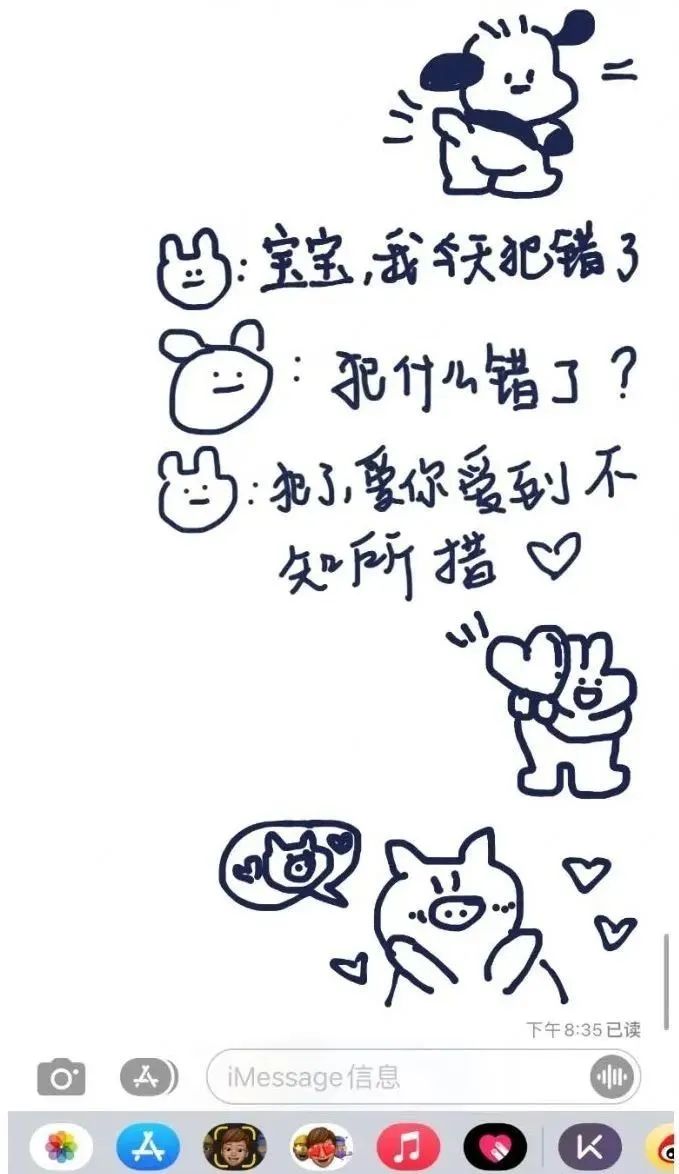 :宝宝,我今天犯错了
:犯什么错了?
:犯了,爱你爱到不
知所措
下午8:35已读
iMessage信息